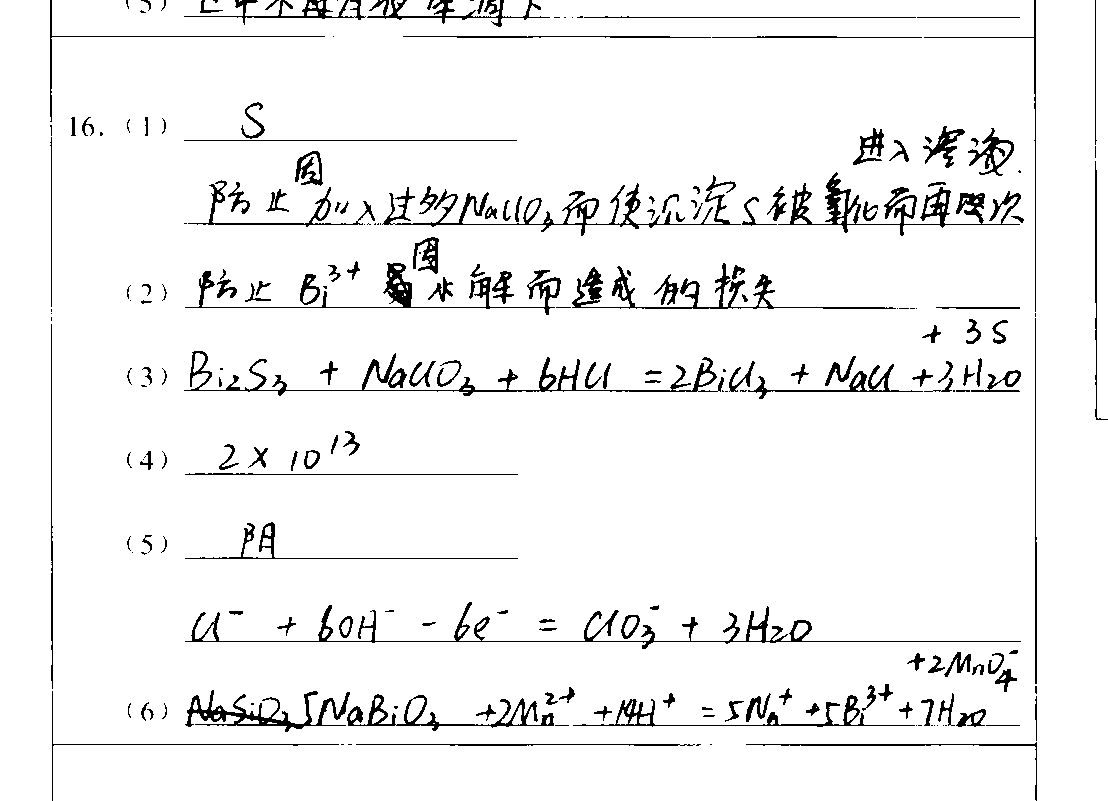 (5)
16. (1) S
防止因加入过多NaClO₃而使沉淀S被氧化而再次进入溶液.
(2) 防止 Bi³⁺ 因水解而造成的损失
(3) Bi₂S₃ + NaClO₃ + 6HCl = 2BiCl₃ + NaCl + 3H₂O + 3S
(4) 2 × 10¹³
(5) 阴
Cl⁻ + 6OH⁻ - 6e⁻ = ClO₃⁻ + 3H₂O
(6) 5NaBiO₃ + 2Mn²⁺ + 14H⁺ = 5Na⁺ + 5Bi³⁺ + 7H₂O + 2MnO₄⁻